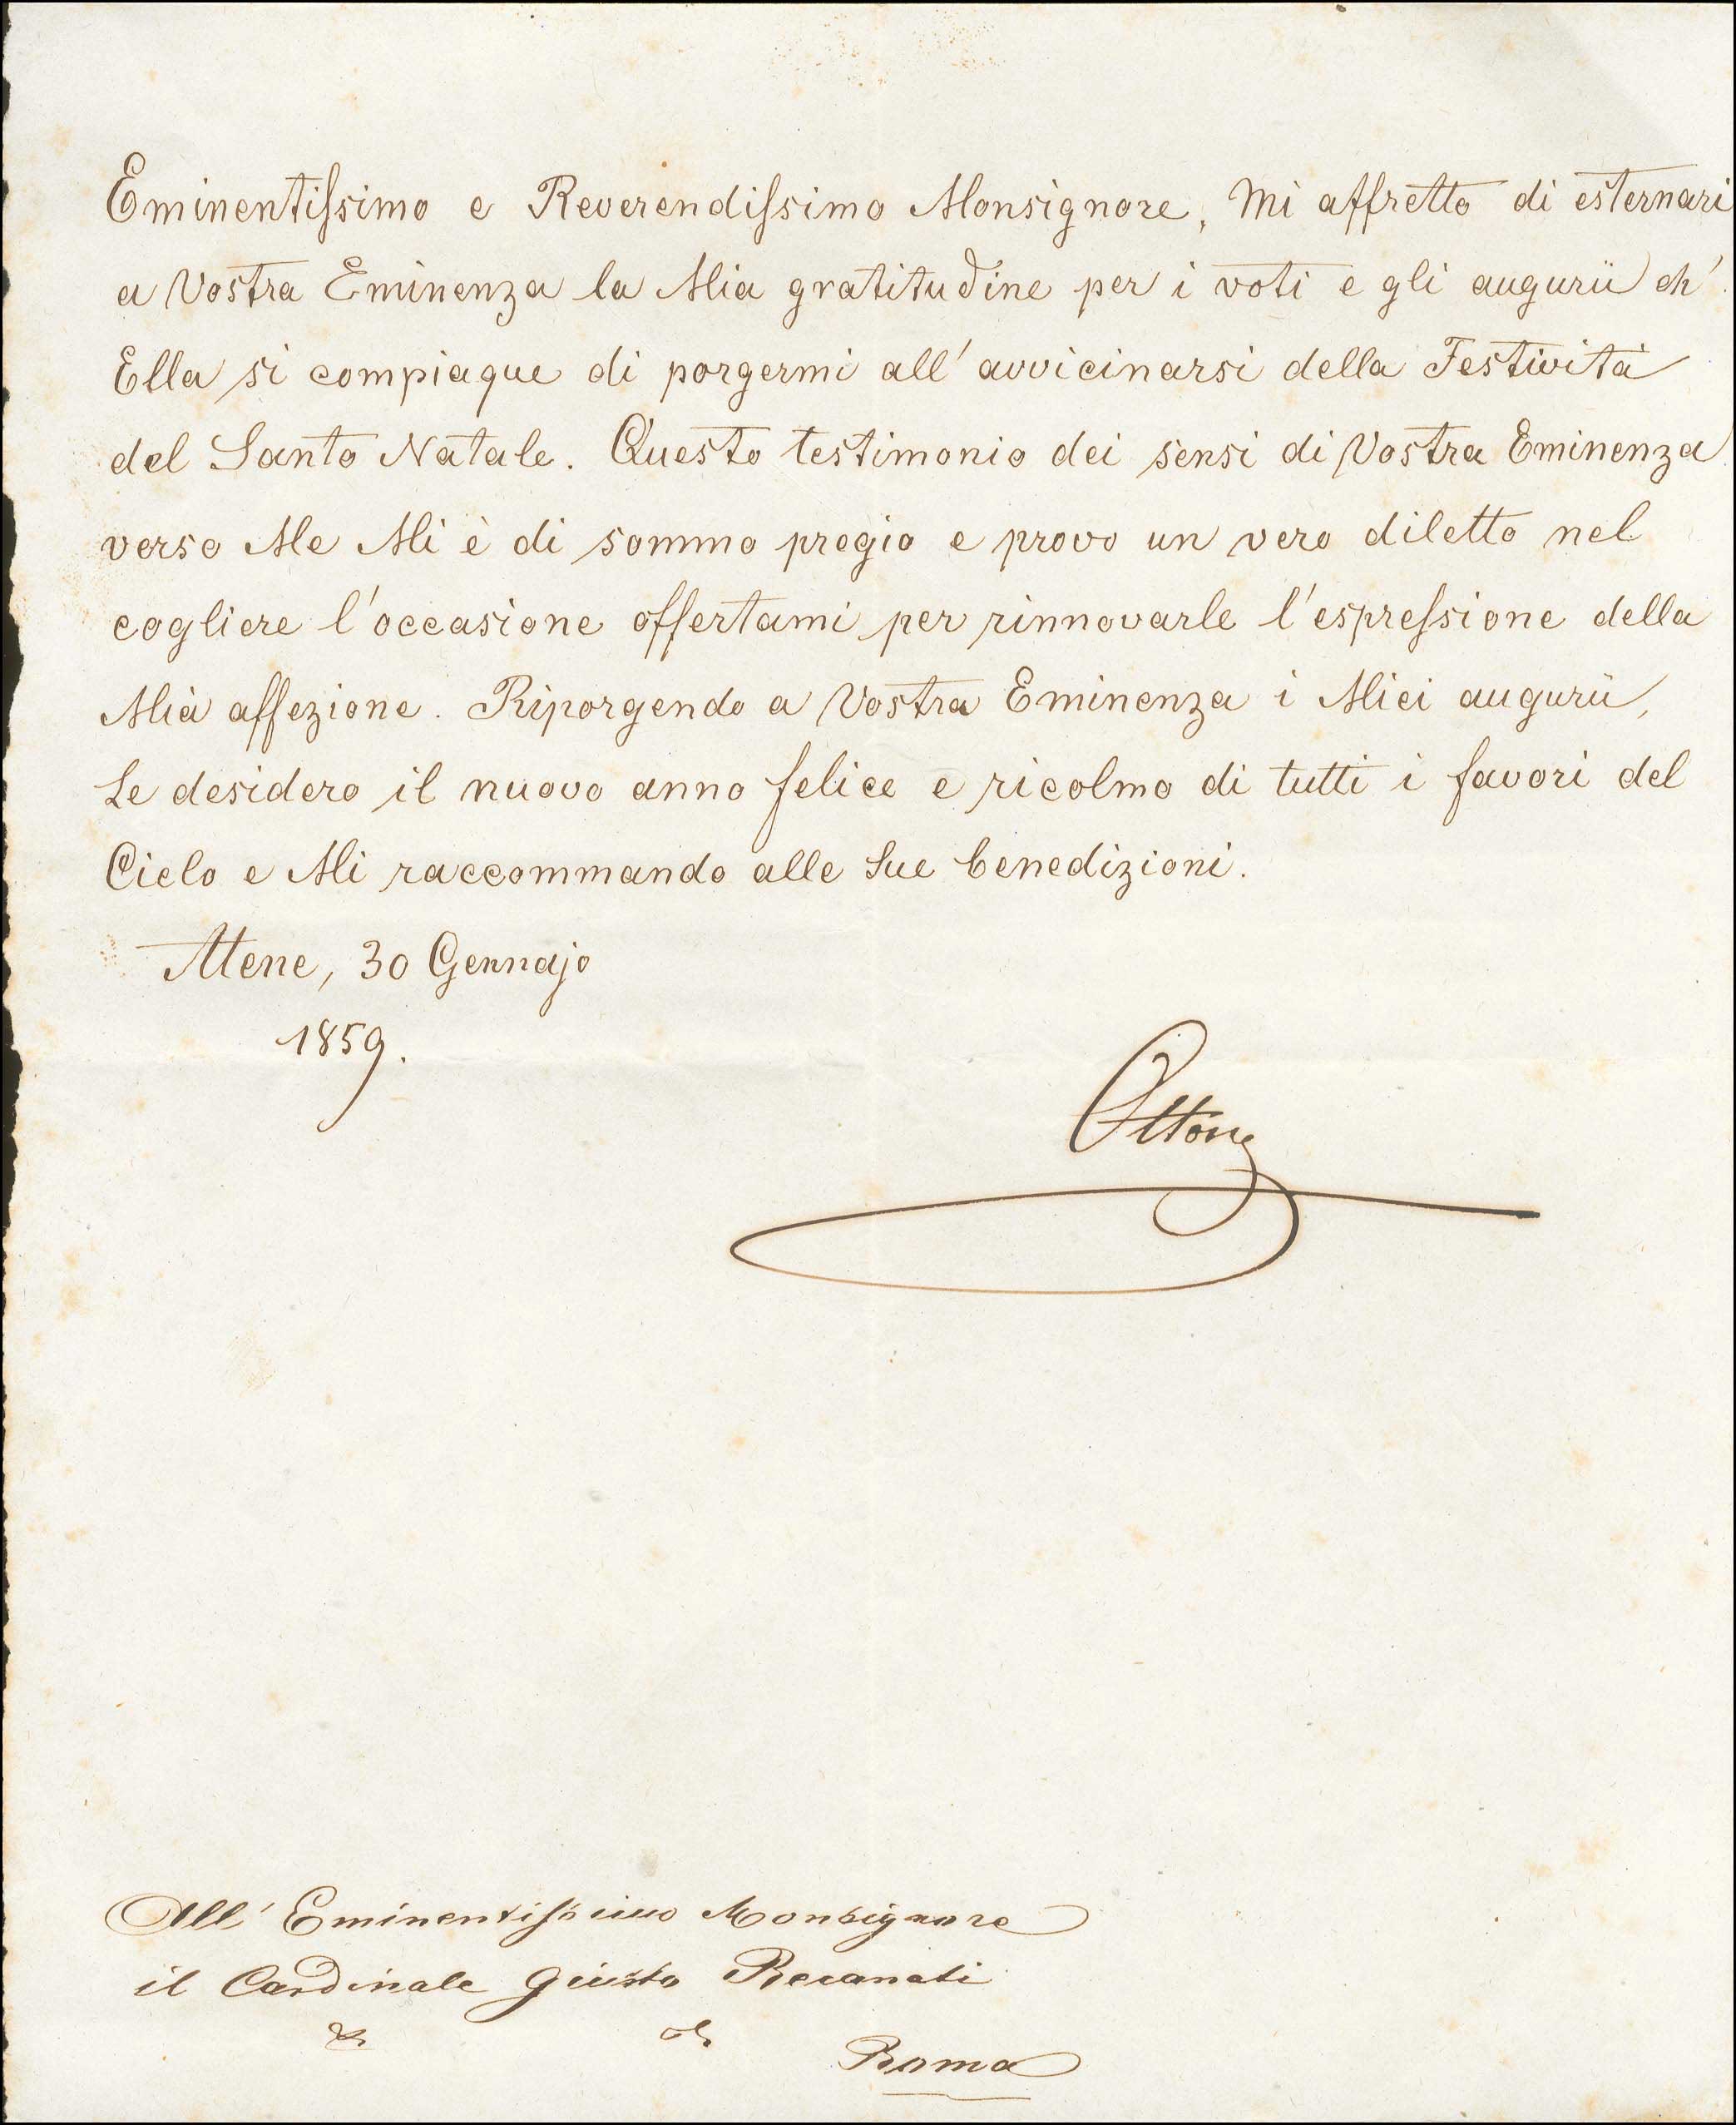 Eminentiſsimo e Reverendiſsimo Monsignore, Mi affretto di esternari
a Vostra Eminenza la Mia gratitudine per i voti e gli augurii ch'
Ella si compiaque di porgermi all' avvicinarsi della Festività
del Santo Natale. Questo testimonio dei sensi di Vostra Eminenza
verso Me Mi è di sommo pregio e provo un vero diletto nel
cogliere l'occasione offertami per rinnovarle l'espreſsione della
Mia affezione. Riporgendo a Vostra Eminenza i Miei augurii,
Le desidero il nuovo anno felice e ricolmo di tutti i favori del
Cielo e Mi raccommando alle Sue benedizioni.
Atene, 30 Gennajo
1859.
Ottone
All' Eminentiſsimo Monsignore
il Cardinale Giusto Recanati
& &
Roma